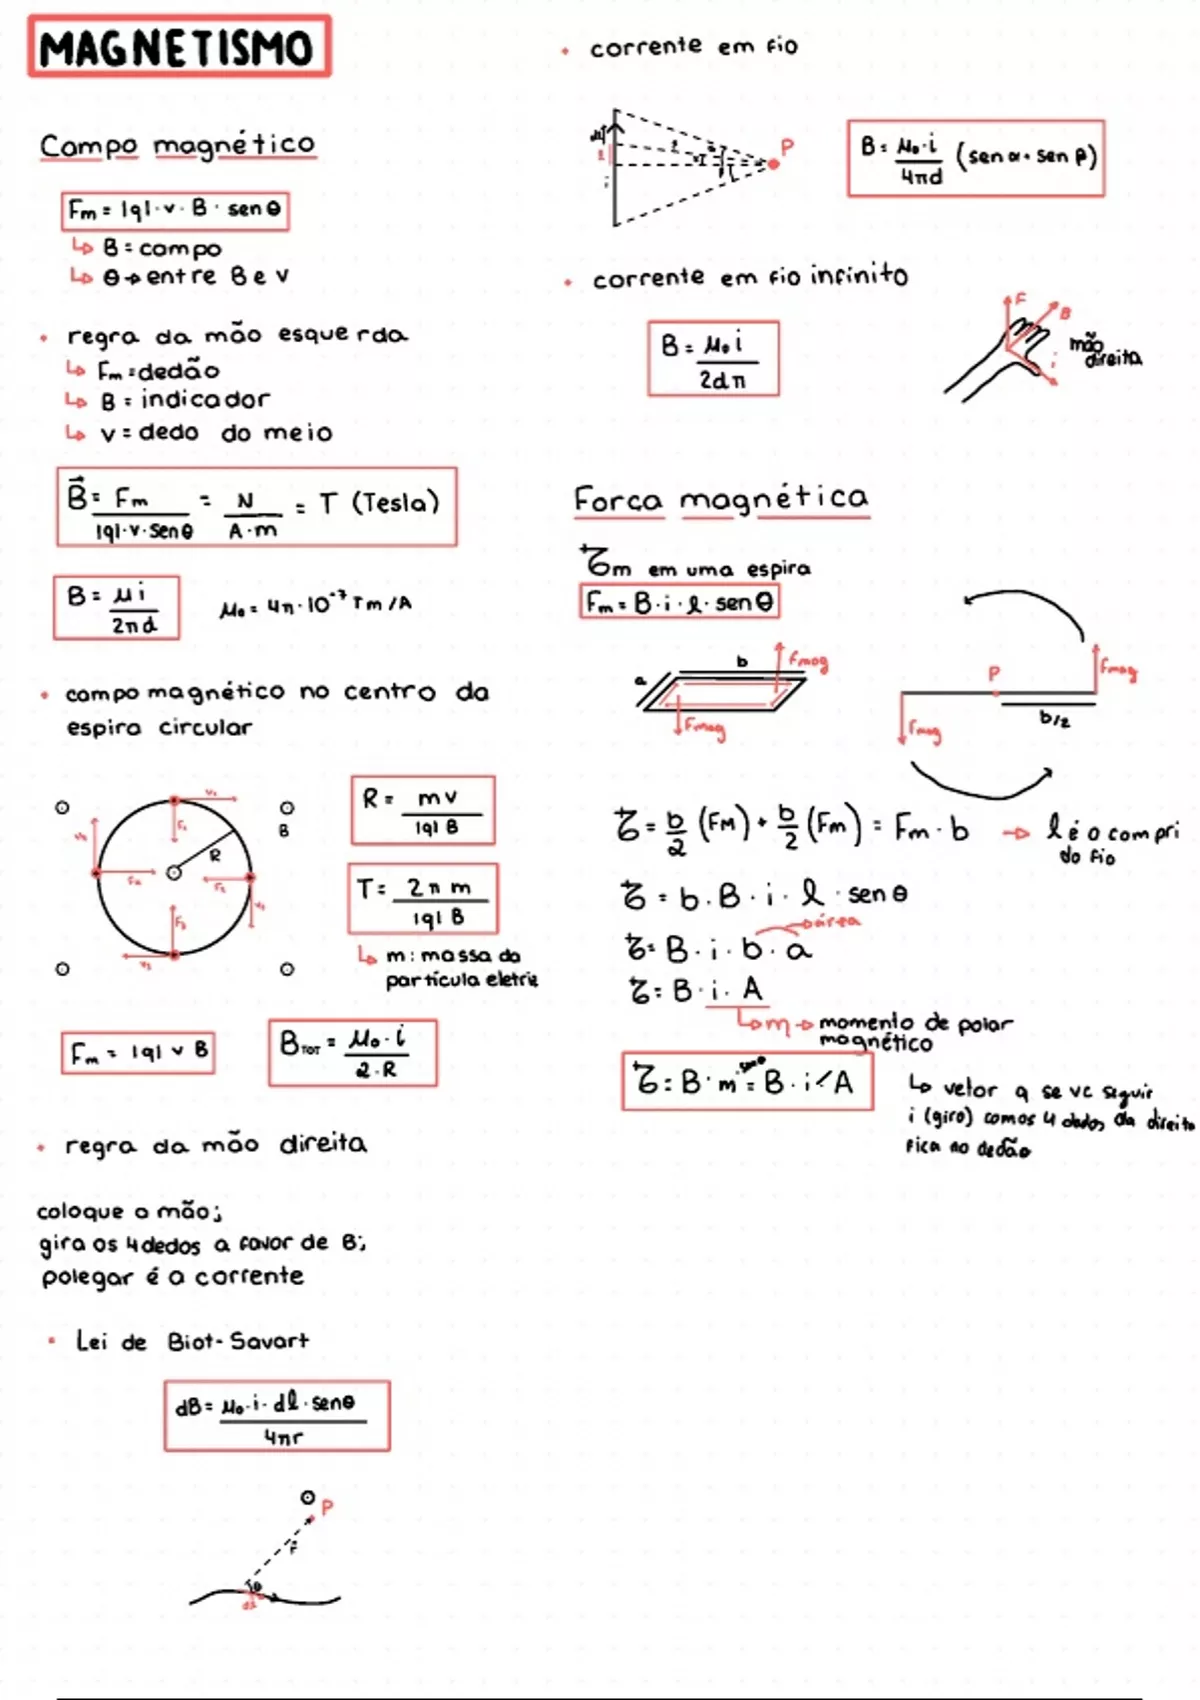 MAGNETISMO
Campo magnético
Fm = |q|·v·B·senθ
↳ B = campo
↳ θ → entre B e v
• regra da mão esquerda
↳ Fm = dedão
↳ B = indicador
↳ v = dedo do meio
B⃗ = Fm / |q|·v·senθ = N / A·m = T (Tesla)
B = μ i / 2πd
μ₀ = 4π·10⁻⁷ Tm/A
• campo magnético no centro da
espira circular
B
R
R = mv / |q| B
T = 2πm / |q| B
↳ m: massa da
partícula eletriz
Fm = |q| v B
B_TOT = μ₀·i / 2·R
• regra da mão direita
coloque a mão;
gira os 4 dedos a favor de B;
polegar é a corrente
• Lei de Biot-Savart
dB = μ₀·i·dl·senθ / 4πr
P
r
θ
dl
• corrente em fio
P
B = μ₀·i / 4πd (sen α + sen β)
• corrente em fio infinito
B = μ₀ i / 2dπ
F
B
i
mão
direita
Força magnética
τm em uma espira
Fm = B·i·l·senθ
a
b
Fmag
Fmag
P
Fmag
b/2
Fmag
τ = b/2 (FM) + b/2 (Fm) = Fm·b → l é o compri
do fio
τ = b.B·i·l·senθ
→ área
τ = B·i·b·a
τ = B·i·A
↳ m → momento de polar
magnético
τ = B·m senθ = B·i·A
↳ vetor q se vc seguir
i (giro) com os 4 dedos da direita
fica no dedão